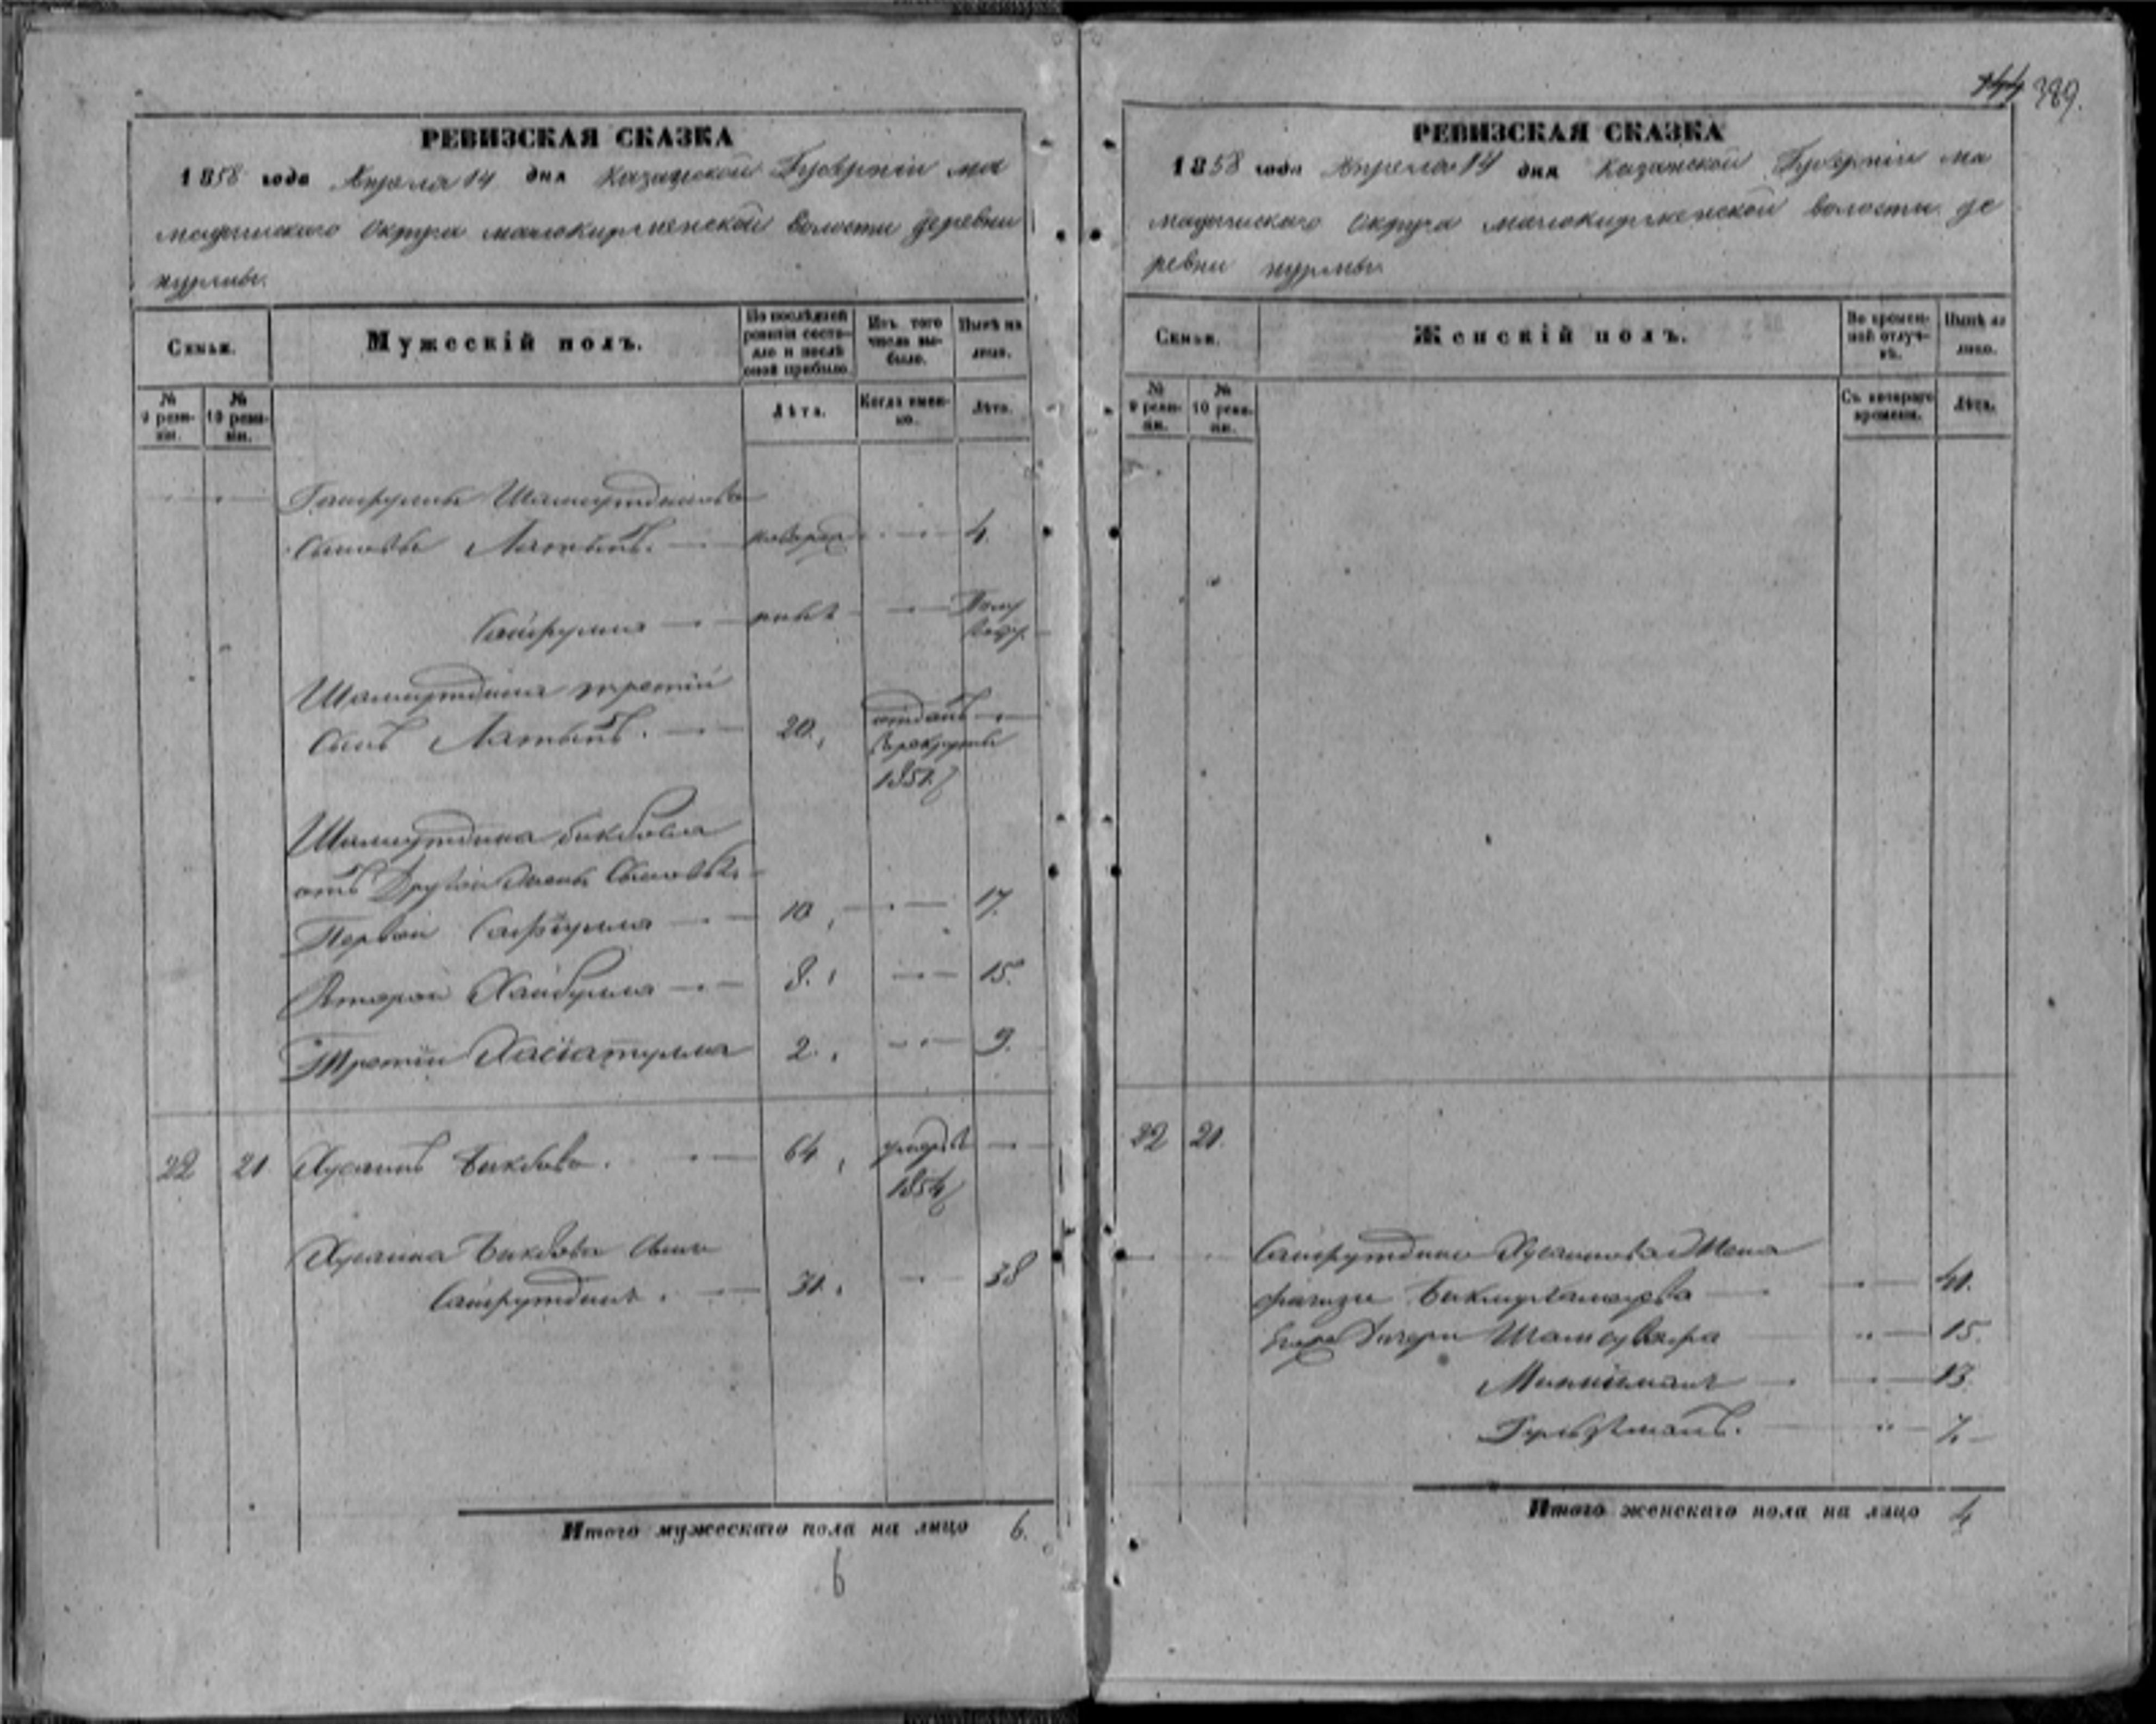 144 389.
РЕВИЗСКАЯ СКАЗКА
1858 года Апреля 14 дня Казанской Губерніи ма
мадышскаго Округа малокирменской волости деревни
нурмы.
Семьи.
Мужескій полъ.
По послѣдней ревизіи состояло и послѣ оной прибыло.
Изъ того числа выбыло.
Нынѣ на лицо.
№ 9 ревизіи.
№ 10 ревизіи.
Лѣта.
Когда именно.
Лѣта.
Шамсутдинова
Сыновья Латыпъ. 4.
Сайфулла
Шамсутдина третій
Сынъ Латыпъ. 20. отданъ
в рекруты
1851
Шамсутдина бикбова
отъ Другой Жены Сыновья
Первой 10 17.
Второй Хайбулла 8. 15.
Третій Хаиатулла 2. 9.
22 21 Хусаинъ Бикбовъ. 64 умеръ
1854
Хусаина Бикбова Сынъ
Сайфутдинъ. 31. 38
Итого мужескаго пола на лицо 6.
6
РЕВИЗСКАЯ СКАЗКА
1858 года Апреля 14 дня Казанской Губерніи ма
мадышскаго Округа малокирменской волости де
ревни нурмы.
Семьи.
Женскій полъ.
Во временной отлучкѣ.
Нынѣ на лицо.
№ 9 ревизіи.
№ 10 ревизіи.
Съ котораго времени.
Лѣта.
22 21.
Сайфутдина Хусаинова Жена
41.
Его Дочери 15.
13.
7.
Итого женскаго пола на лицо 4